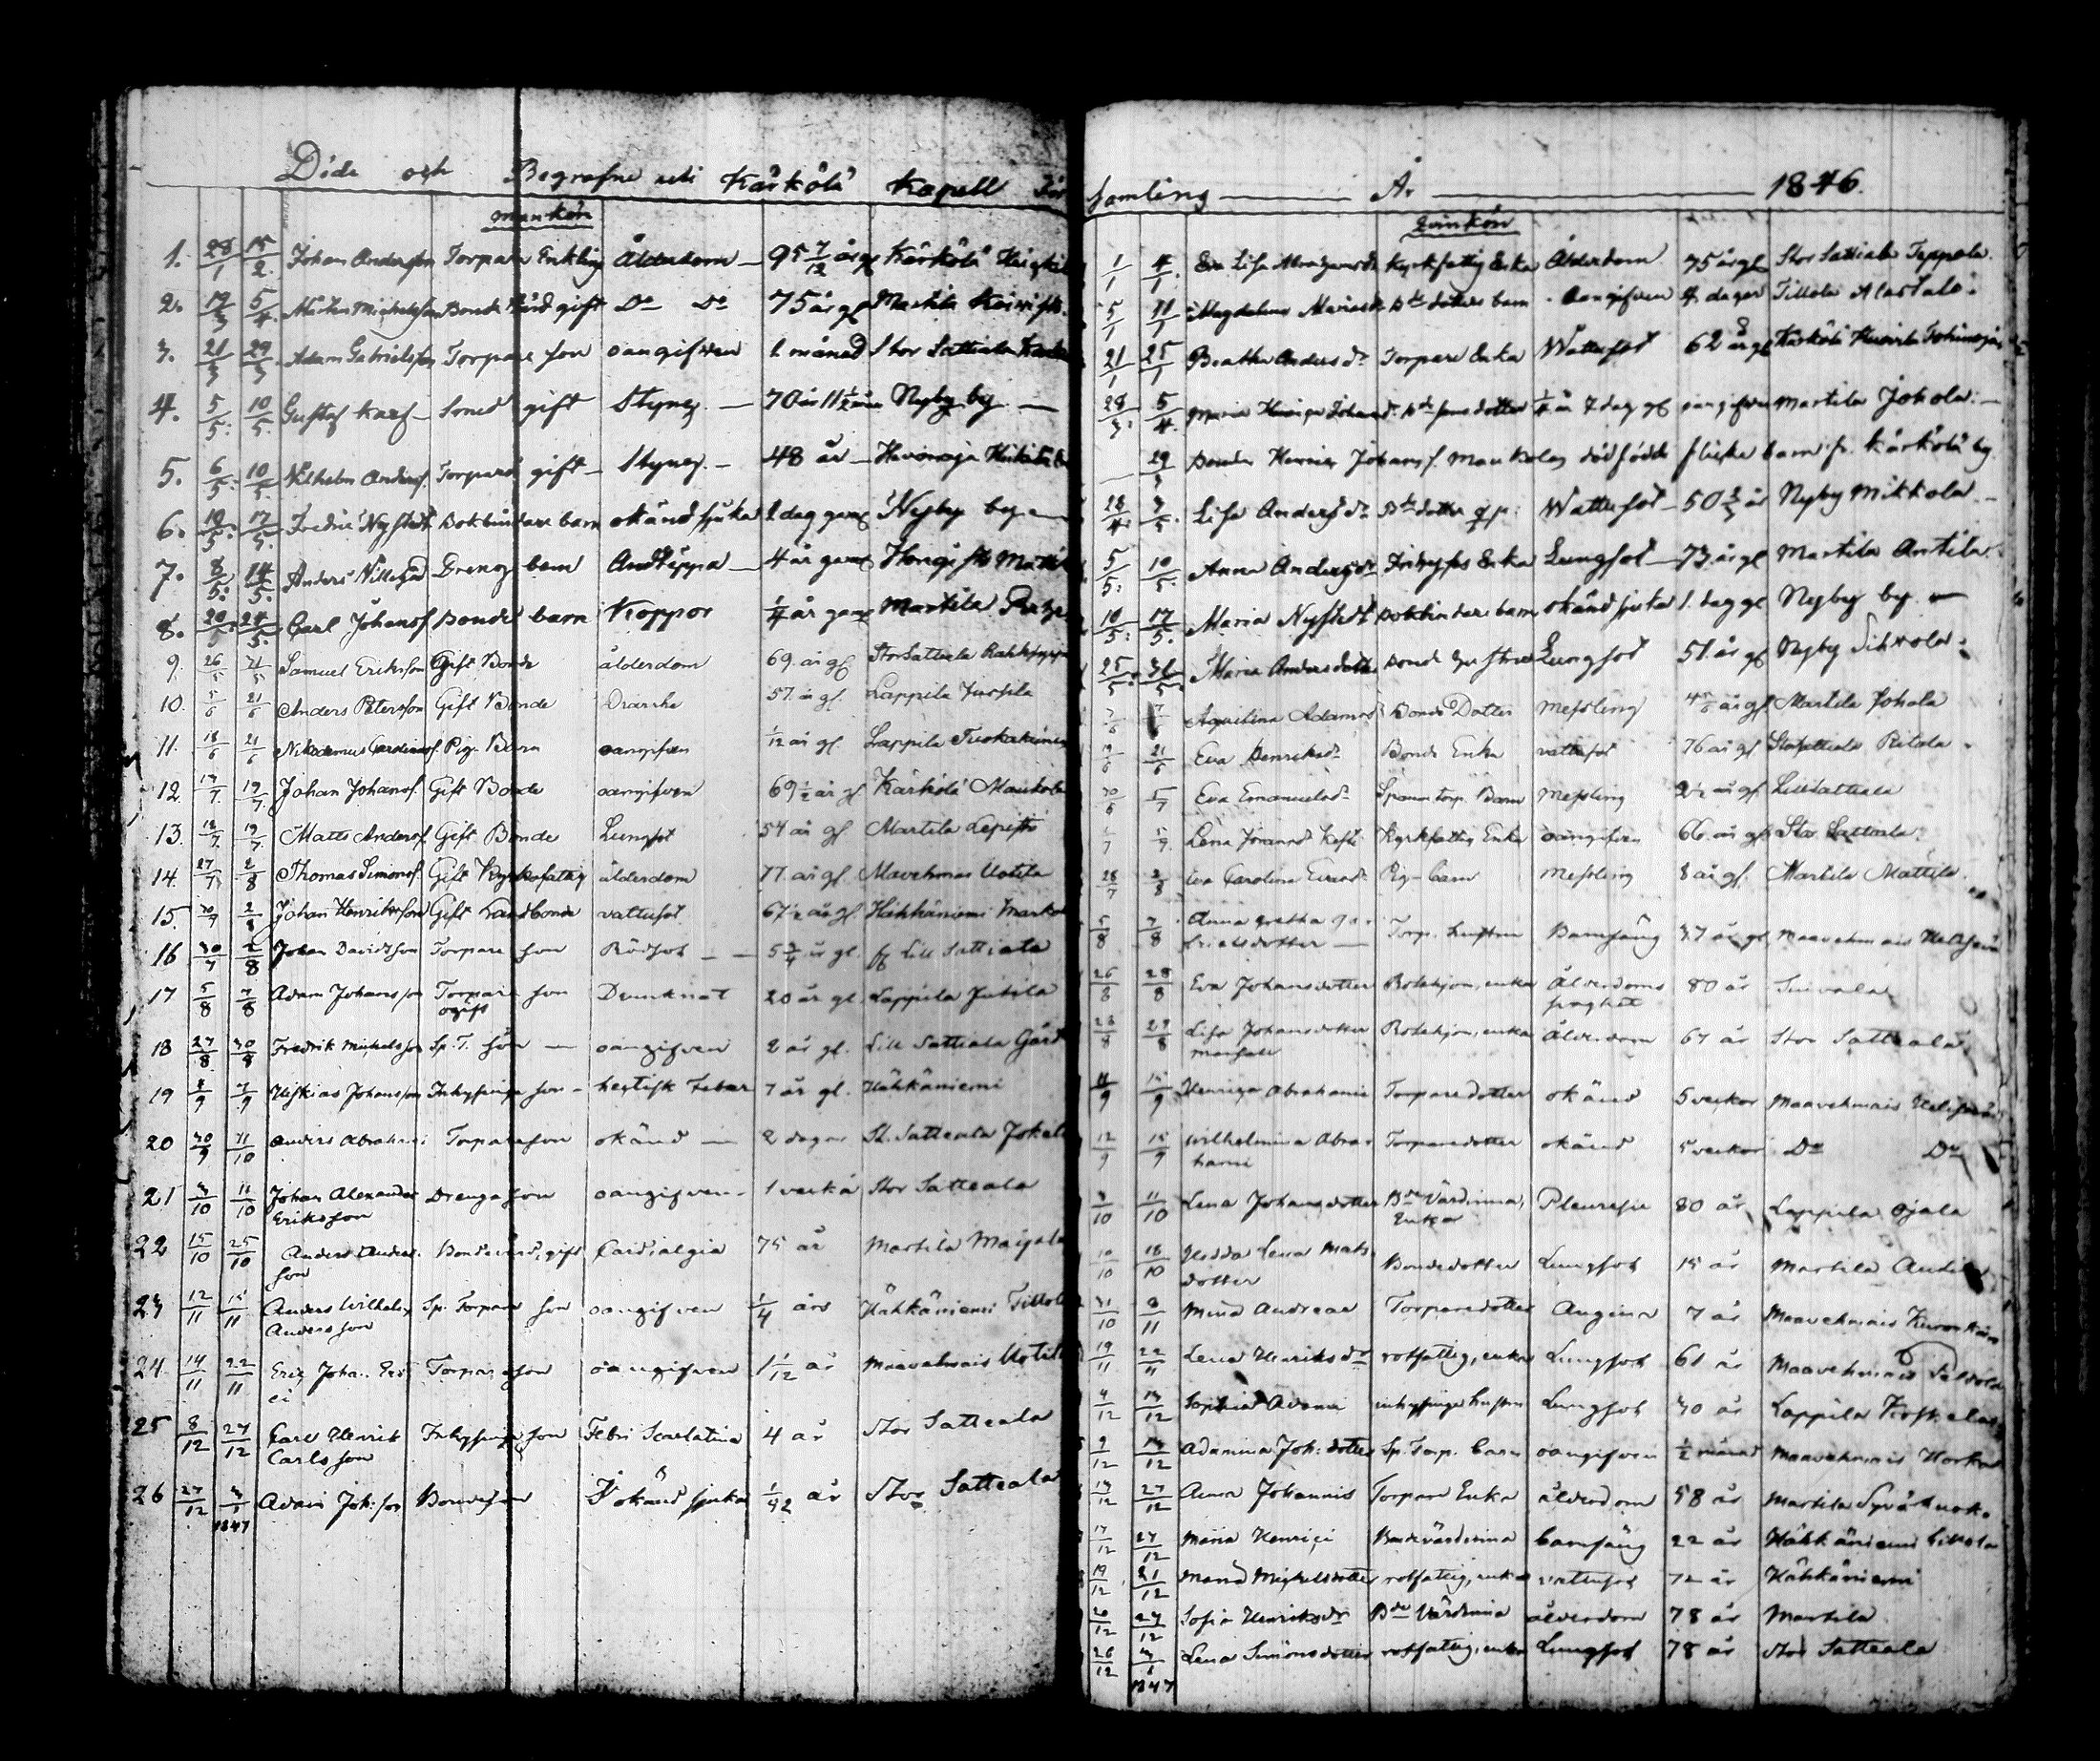 Döde och Begrafne uti Kärkölä Kapell För
mankön
1. 28/1 15/2 Johan Andersson Torpare Enkling Ålderdom 95 7/12 årg Kärkölä
2. 19/3 5/4 Mårten Michelsson Bonde gift Do Do 75 årgl Martila
3. 21/3 29/3 Adam Gabrielsson Torpare son oangifven 1 månad Stor Sattiala
4. 5/5 10/5 Gustaf Karf Smed gift Styng 70 år 11 1/2 Nyby by
5. 6/5 10/5 Wilhelm Andersf. Torpare gift Styng 48 år
6. 10/5 17/5 Fredric Nystedt Bokbindare barn okänd sjuka 1 dag gam Nyby by
7. 8/5 14/5 Anders Dreng barn Andtäppa 4 år gam
8. 20/5 24/5 Carl Johansf Bonde barn Koppor 1/4 år gam Martila
9. 26/5 31/5 Samuel Eriksson Gift Bonde ålderdom 69 år gl Stor Sattiala
10. 5/6 21/6 Anders Petersson Gift Bonde Diarrhe 57 år gl. Lappila Jussila
11. 18/6 21/6 Nikodemus Pig. Barn oangifven 1/12 år gl. Lappila
12. 17/7 19/7 Johan Johansf. Gift Bonde oangifven 69 1/2 år gl Kärkölä Maukola
13. 18/7 19/7 Matts Andersf. Gift Bonde Lungsot 54 år gl Martila Lepistö
14. 27/7 2/8 Thomas Simonsf. Gift Kyrkofattig ålderdom 77 år gl. Maavehmas Uotila
15. 30/7 2/8 Johan Henriksson Gift Landbonde vattusot 67 1/2 år gl. Hähkäniemi
16 30/7 2/8 Johan Davidsson Torpare son Rödsot 5 3/4 år gl. Lill Sattiala
17 5/8 7/8 Adam Johansson Torpare son
ogift Drunknat 20 år gl. Lappila Jutila
18 27/8 30/8 Fredrik Mickelsson Sp. T. son oangifven 2 år gl. Lill Sattiala
19 2/9 7/9 Heskias Johansson Inhysinge son hectisk Feber 7 år gl. Hähkäniemi
20 30/9 11/10 Anders Abrahami Torpareson okänd 2 dagar St. Satteala
21 3/10 11/10 Johan Alexander
Eriksson Drengason oangifven 1 vecka Stor Satteala
22 15/10 25/10 Anders Anders-
son Bonde gift Cardialgia 75 år Martila
23 12/11 15/11 Anders Wilhelm
Andersson Sp. Torpare son oangifven 1/4 års Hähkäniemi Tillola
24 14/11 22/11 Eric Johan Torpareson oangifven 1 1/12 år Maavehmais Uotila
25 8/12 27/12 Carl Henrik
Carlsson Inhysinge son Febri Scarlatina 4 år Stor Satteala
26 27/12 3/1 1847 Adam Joh:son Bondeson okänd sjuka 1/42 år Stor Satteala
samling År 1846.
Qvinkön
1/1 4/1 Eva Lisa Kyrkfattig Enka Ålderdom 75 årgl Stor Sattiala Seppala
5/1 11/1 Magdalena dotters barn oangifven 4 dagar Tillola Alastalo
21/1 25/1 Beatha Anders dr Torpare Enka Wattusot 62 årgl Kärkölä
28/3 5/4 Maria dotter 1/4 år 7 dag gl oangifven Martila Jokola
29 Bonden Johansf. Maukolas dödfödde flicke barn fr. Kärkölä by
28/4 3/5 Lisa Anders dr dotter Wattusot 50 2/3 år Nyby Mikkola
5/5 10/5 Anna Anders dr Inhyses Enka Lungsot 73 årgl Martila Antila
10/5 17/5 Maria Nystedt Bokbindare barn okänd sjuka 1 dag gl Nyby by
25/5 31/5 Maria Andersdotter Bonde hustru Lungsot 51 år gl Nyby
7/6 Aqvilina Adamsd Bonde Dotter Messling 4 5/6 år gl Martila Johola
19/6 21/6 Eva Henriksd. Bonde Enka vattusot 76 år gl Stor Sattiala Ritola
30/6 5/7 Eva Emanuelsd. Barn Messling 2 1/2 år gl. Lill Sattiala
Lena Kyrkfattig Enka oangifven 66 år gl. Stor Sattiala
28/7 2/8 Eva Carolina Pig-barn Messling 8 år gl. Martila Mattila
5/8 7/8 Anna Gretha Ga-
brielsdotter Torp. hustru Barnsäng 37 år gl Maavehmais
26/8 28/8 Eva Johansdotter Rotehjon, enka Ålderdoms
svaghet 80 år
23/8 29/8 Lisa Johansdotter Rotehjon, enka Ålderdom 67 år Stor Satteala
11/9 15/9 Henrica Abrahami Torparedotter okänd 5 veckor Maavehmais
12/9 15/9 Wilhelmina Abra-
hami Torparedotter okänd 5 veckor Do Do
3/10 11/10 Lena Johansdotter Bde Värdinna,
Enka Pleuresie 80 år Lappila Ojala
10/10 18/10 Hedda Lena Mats-
dotter Bondedotter Lungsot 15 år Martila
31/10 8/11 Mina Andreae Torparedotter Angina 7 år Maavehmais
19/11 22/11 Lena Henriks dr rotfattig, enka Lungsot 61 år Maavehmais
4/12 13/12 Sophia Adami inhysinge hustru Lungsot 30 år Lappila
9/12 13/12 Adamina Joh: dotter Sp. Torp. barn oangifven 1/2 månad Maavehmais
13/12 27/12 Anna Johannis Torpare Enka ålderdom 58 år Martila
17/12 27/12 Maria Henrici Bondevärdinna barnsäng 22 år Hähkäniemi
19/12 21/12 Maria Mickelsdotter rotfattig, enka vattusot 72 år Hähkäniemi
20/12 27/12 Sofia Henriksdr Bde Värdinna ålderdom 78 år Martila
26/12 3/1 1847 Lena Simonsdotter rotfattig, enka Lungsot 78 år Stor Satteala